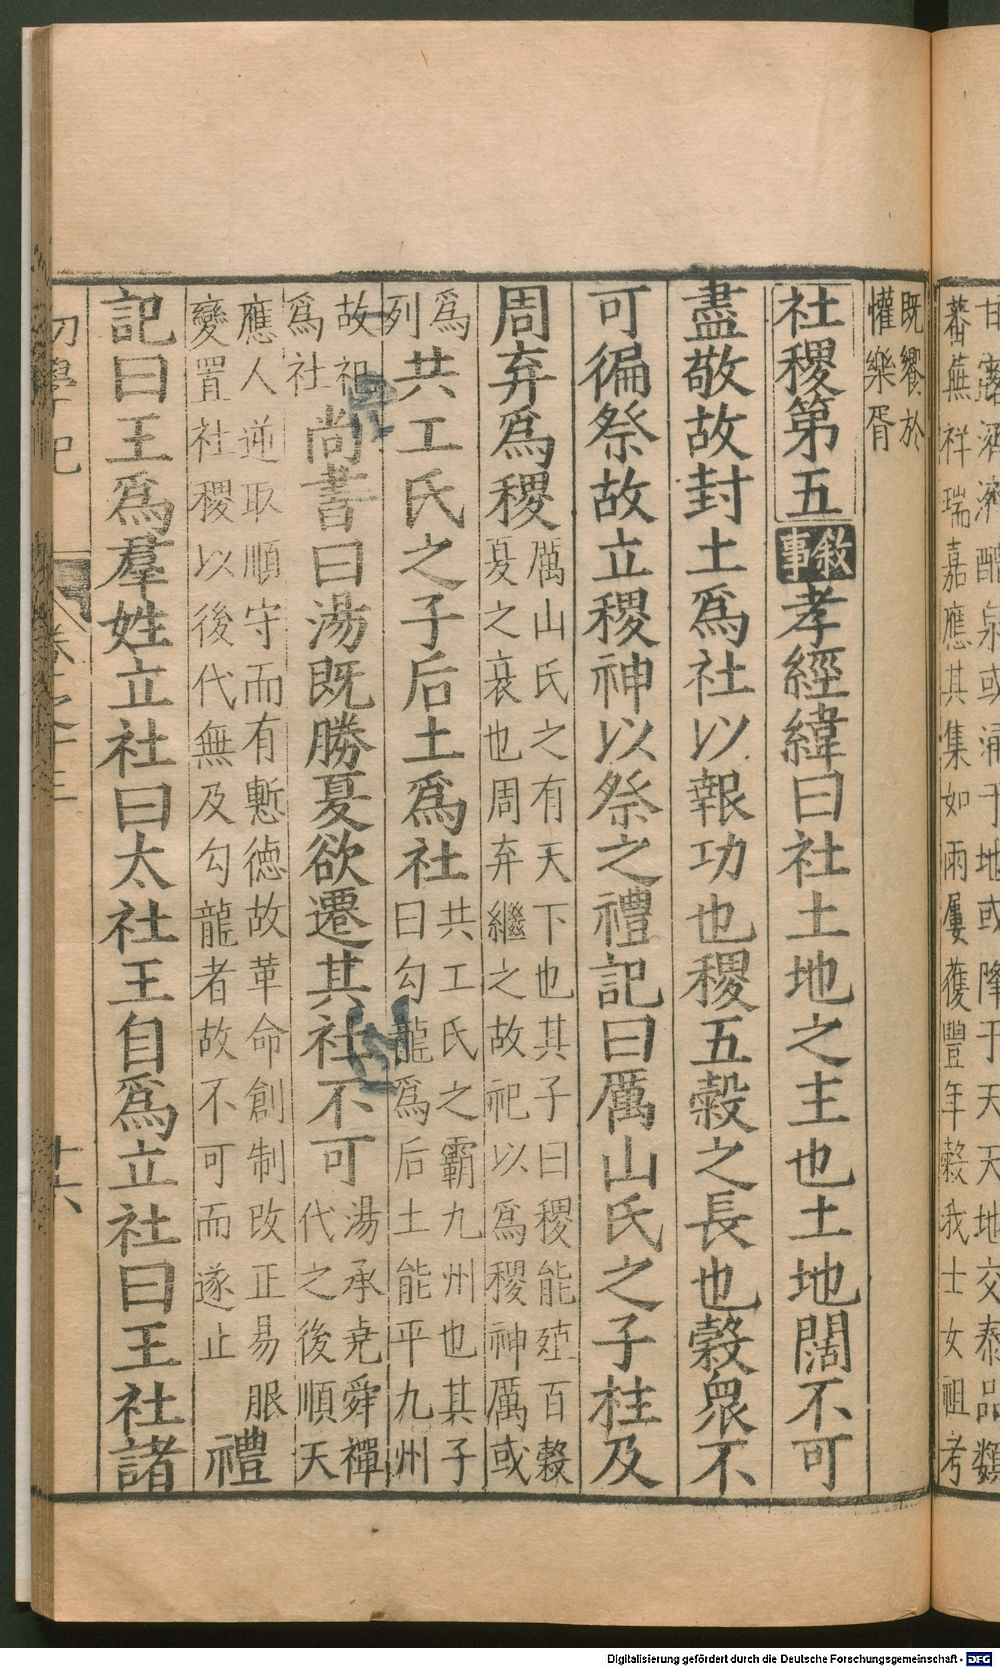 甘露酒濟醴泉或涌于地或降于天天地交泰品類
蕃蕪祥瑞嘉應其集如雨屢獲豐年穀我士女祖考
既饗於
懽樂胥
社稷第五 敘事 孝經緯曰社土地之主也土地闊不可
盡敬故封土爲社以報功也稷五穀之長也穀衆不
可徧祭故立稷神以祭之禮記曰厲山氏之子柱及
周弃爲稷 厲山氏之有天下也其子曰稷能殖百穀
夏之衰也周弃繼之故祀以爲稷神厲或
爲
列
共工氏之子后土爲社 共工氏之霸九州也其子
曰勾龍爲后土能平九州
故祖
爲社
尚書曰湯既勝夏欲遷其社不可 湯承堯舜禪
代之後順天
應人逆取順守而有慙德故革命創制改正易服
變置社稷以後代無及勾龍者故不可而遂止
禮
記曰王爲羣姓立社曰太社王自爲立社曰王社諸
初學記
卷之十三
十六
Digitalisierung gefördert durch die Deutsche Forschungsgemeinschaft - DFG